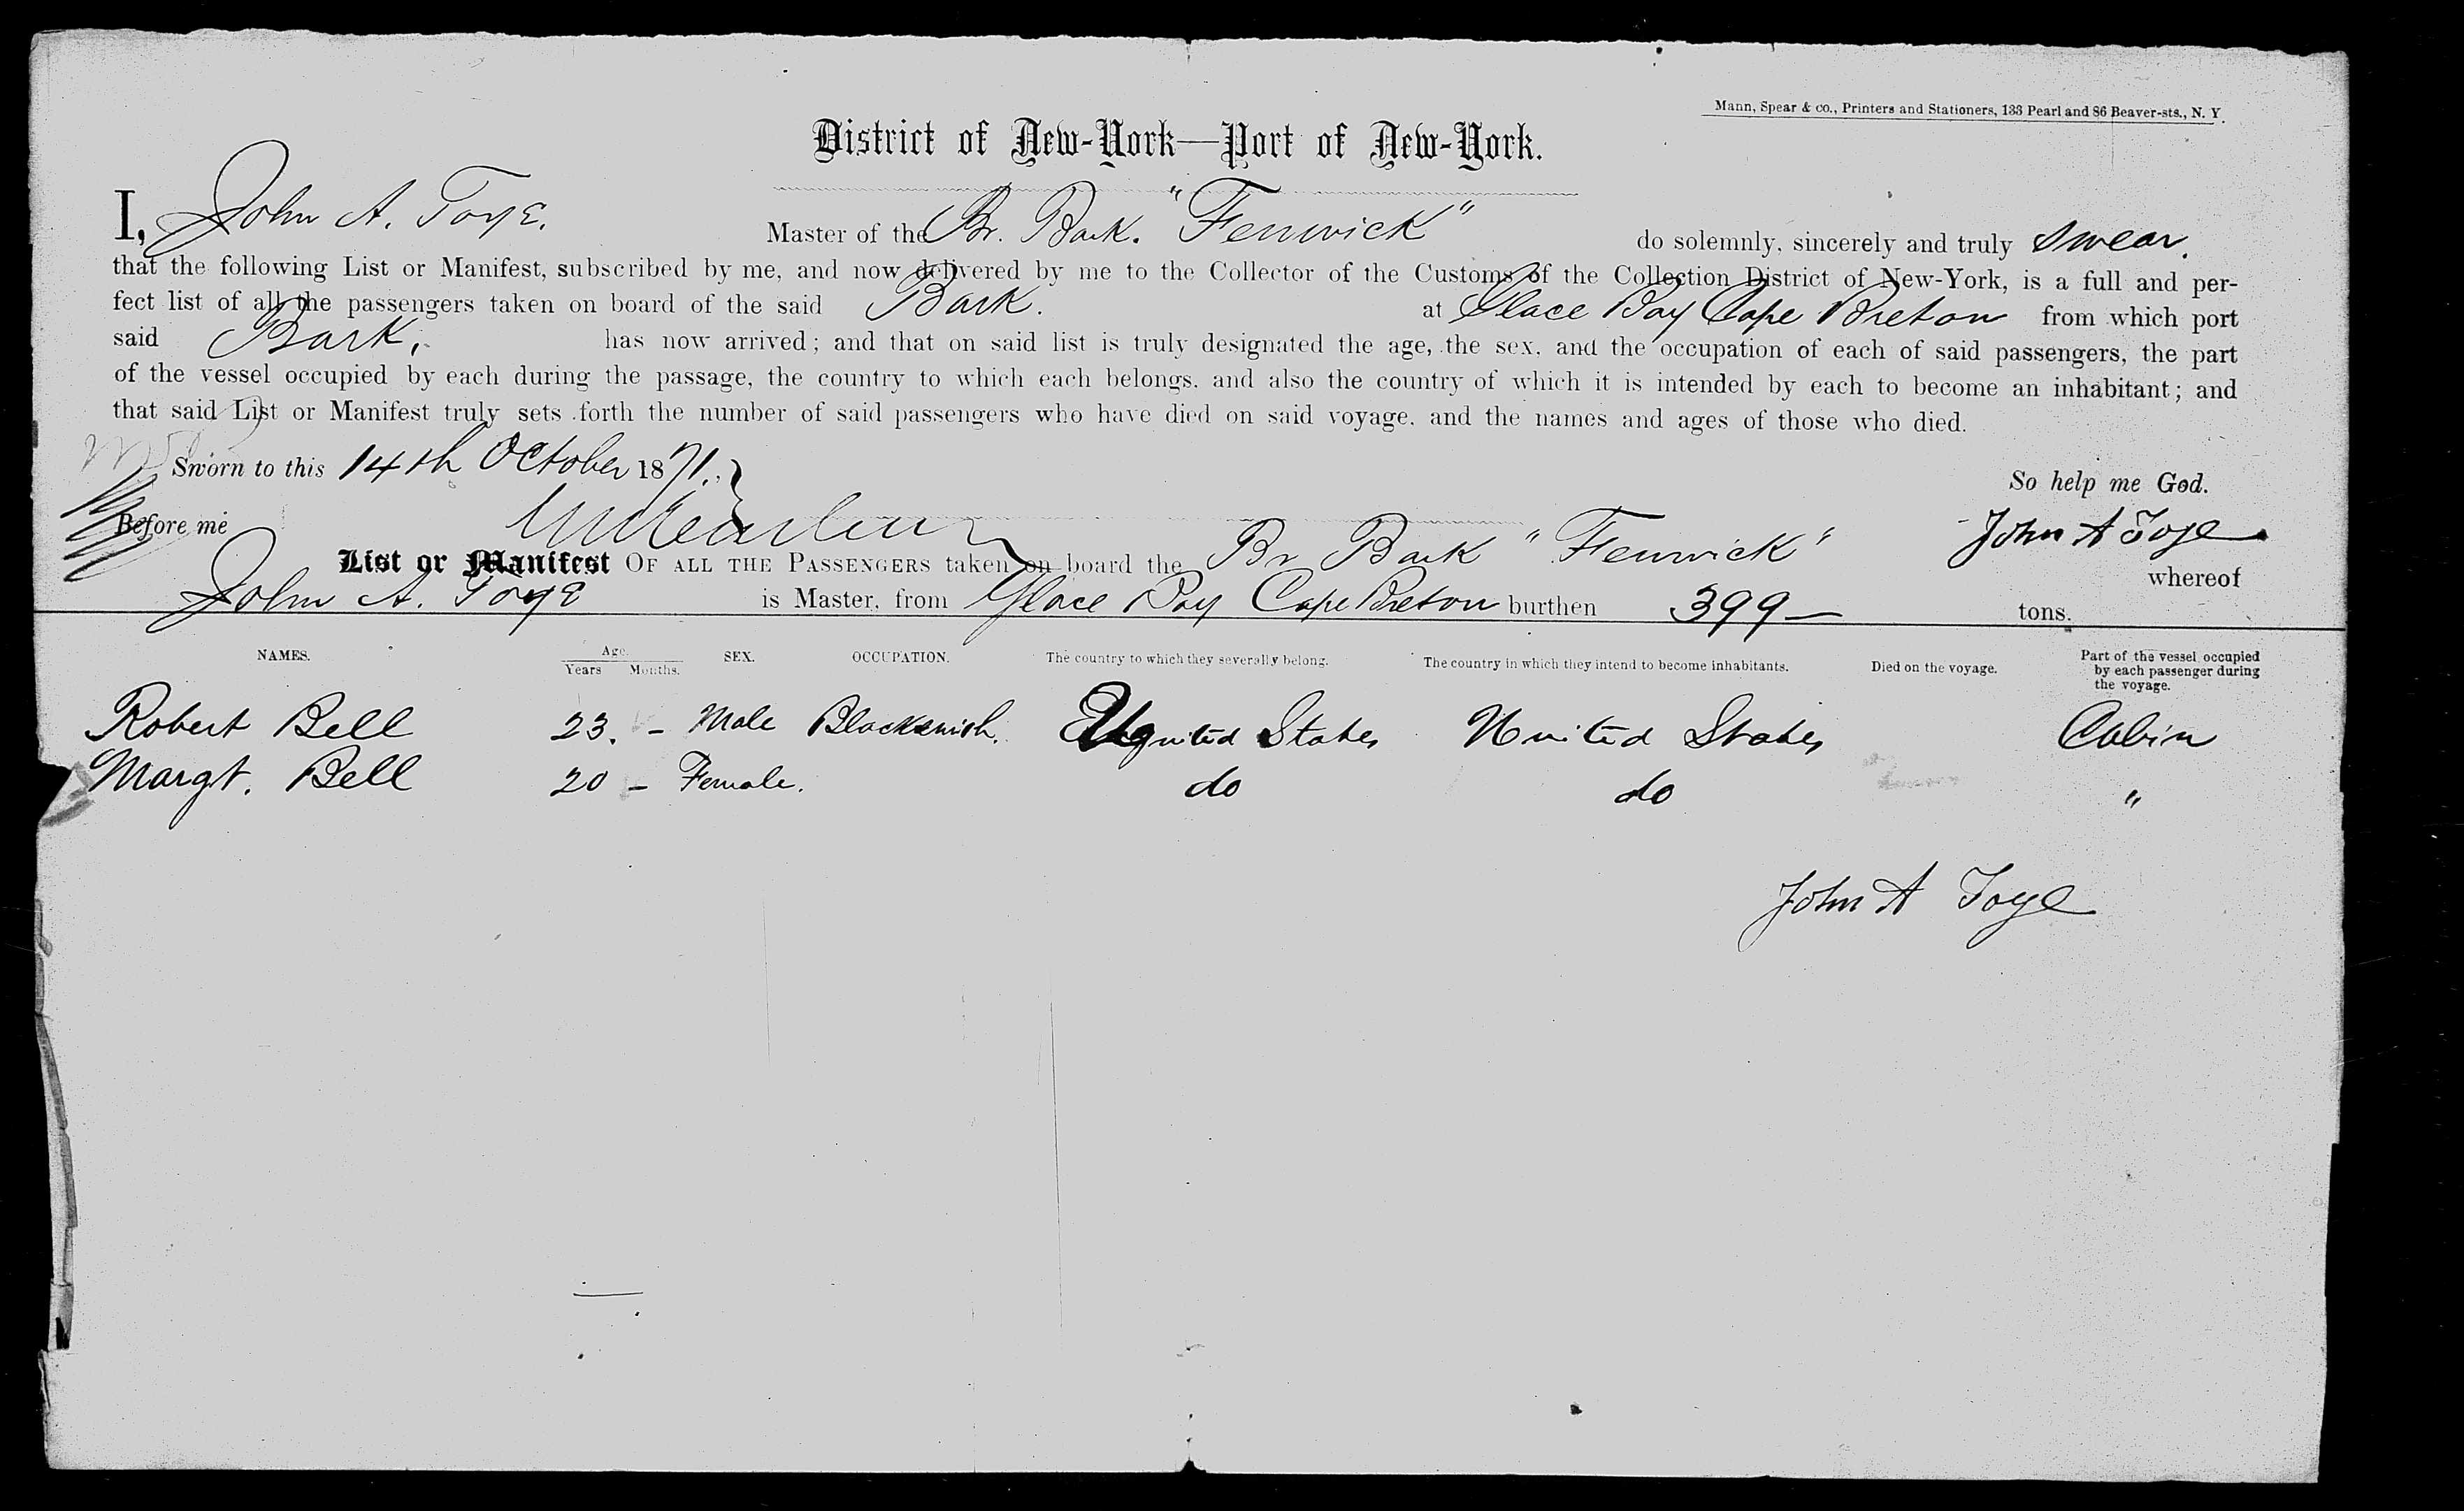 Mann, Spear & co., Printers and Stationers, 133 Pearl and 86 Beaver-sts., N. Y.
District of New-York—Port of New-York.
I, John A. Toye. Master of the Br. Bark. "Fenwick" do solemnly, sincerely and truly swear.
that the following List or Manifest, subscribed by me, and now delivered by me to the Collector of the Customs of the Collection District of New-York, is a full and per-
fect list of all the passengers taken on board of the said Bark. at Glace Bay Cape Breton from which port
said Bark, has now arrived; and that on said list is truly designated the age, the sex, and the occupation of each of said passengers, the part
of the vessel occupied by each during the passage, the country to which each belongs, and also the country of which it is intended by each to become an inhabitant; and
that said List or Manifest truly sets forth the number of said passengers who have died on said voyage, and the names and ages of those who died.
Sworn to this 14th October 1871.
So help me God.
Before me
John A Toye
List or Manifest OF ALL THE PASSENGERS taken on board the Br Bark "Fenwick" whereof
John A. Toye is Master, from Glace Bay Cape Breton burthen 399 — tons.
NAMES. Age. Years Months. SEX. OCCUPATION. The country to which they severally belong. The country in which they intend to become inhabitants. Died on the voyage. Part of the vessel occupied
by each passenger during
the voyage.
Robert Bell 23. - Male Blacksmith. United States United States Cabin
Margt. Bell 20 - Female. do do "
John A Toye